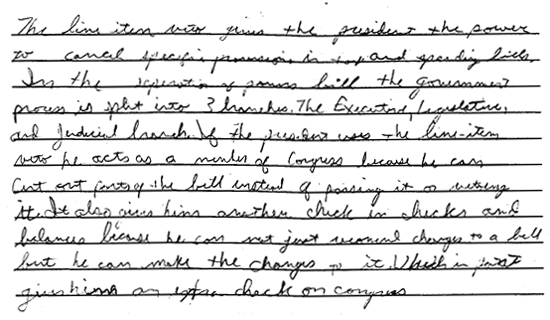 The line item veto gives the president the power
to cancel specific provisions in tax and spending bills.
In the seperation of powers bill the government
proces is split into 3 branches. The Executive, Legislative,
and Judicial branch. If the president uses the line-item
veto he acts as a member of Congress because he can
cut out parts of the bill instead of passing it or vetoing
it. It also gives him another check in checks and
balances because he can not just recomend changes to a bill
but he can make the changes to it. Which in
gives him an extra check on congress